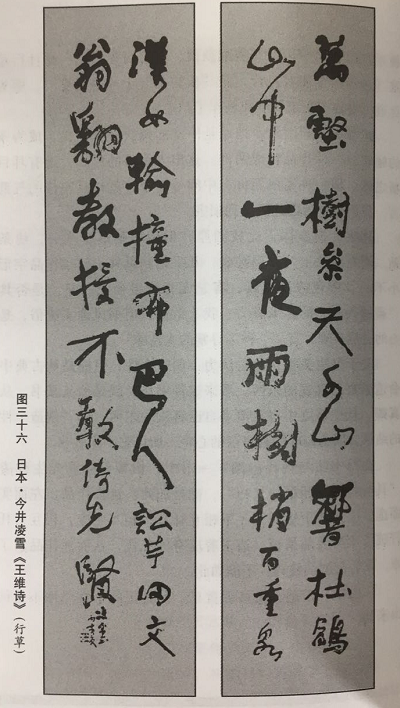 萬壑樹參天千山響杜鵑
山中一夜雨樹梢百重泉
漢女輸橦布巴人訟芋田文
翁翻教授不敢倚先賢
图三十六 日本·今井凌雪《王维诗》(行草)